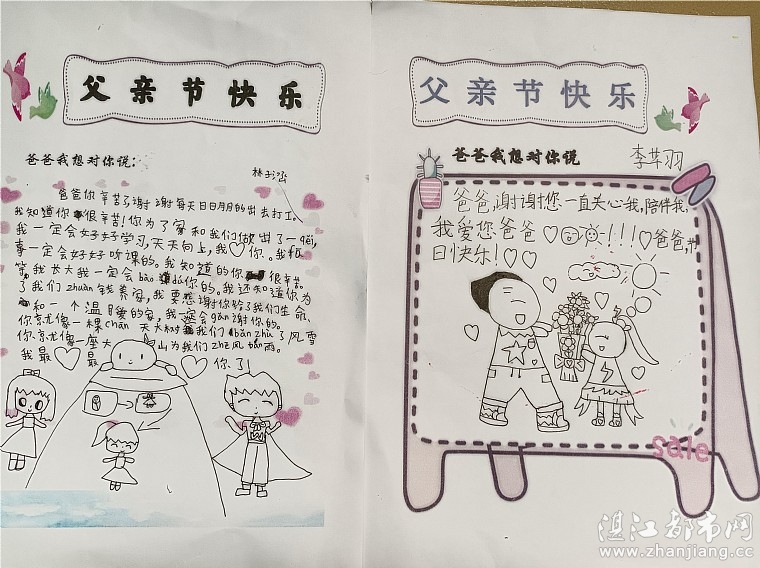 父亲节快乐
爸爸我想对你说：
林子涵
爸爸你辛苦了谢谢每天日日月月的出去打工。
我知道你很辛苦！你为了家和我们做出了一切，
我一定会好好学习，天天向上，我♡你。我和
事一定会好好听课的。我知道的你很辛苦。
等我长大我一定会bào你的。我还知道你为
了我们zhuàn钱养家，我要感谢你给了我们生命
和一个温暖的家，我一定会gǎn谢你的。
你就像一棵chān天大树我们bāng zhù了风雪
你就像一座大山为我们zhē风bǎn雨。
我最♡最♡你了！
父亲节快乐
爸爸我想对你说
李芊羽
爸爸，谢谢您一直关心我，陪伴我，
我爱您爸爸♡!!!♡爸爸，节
日快乐！♡♡
sale
湛江都市网
www.zhanjiang.cc